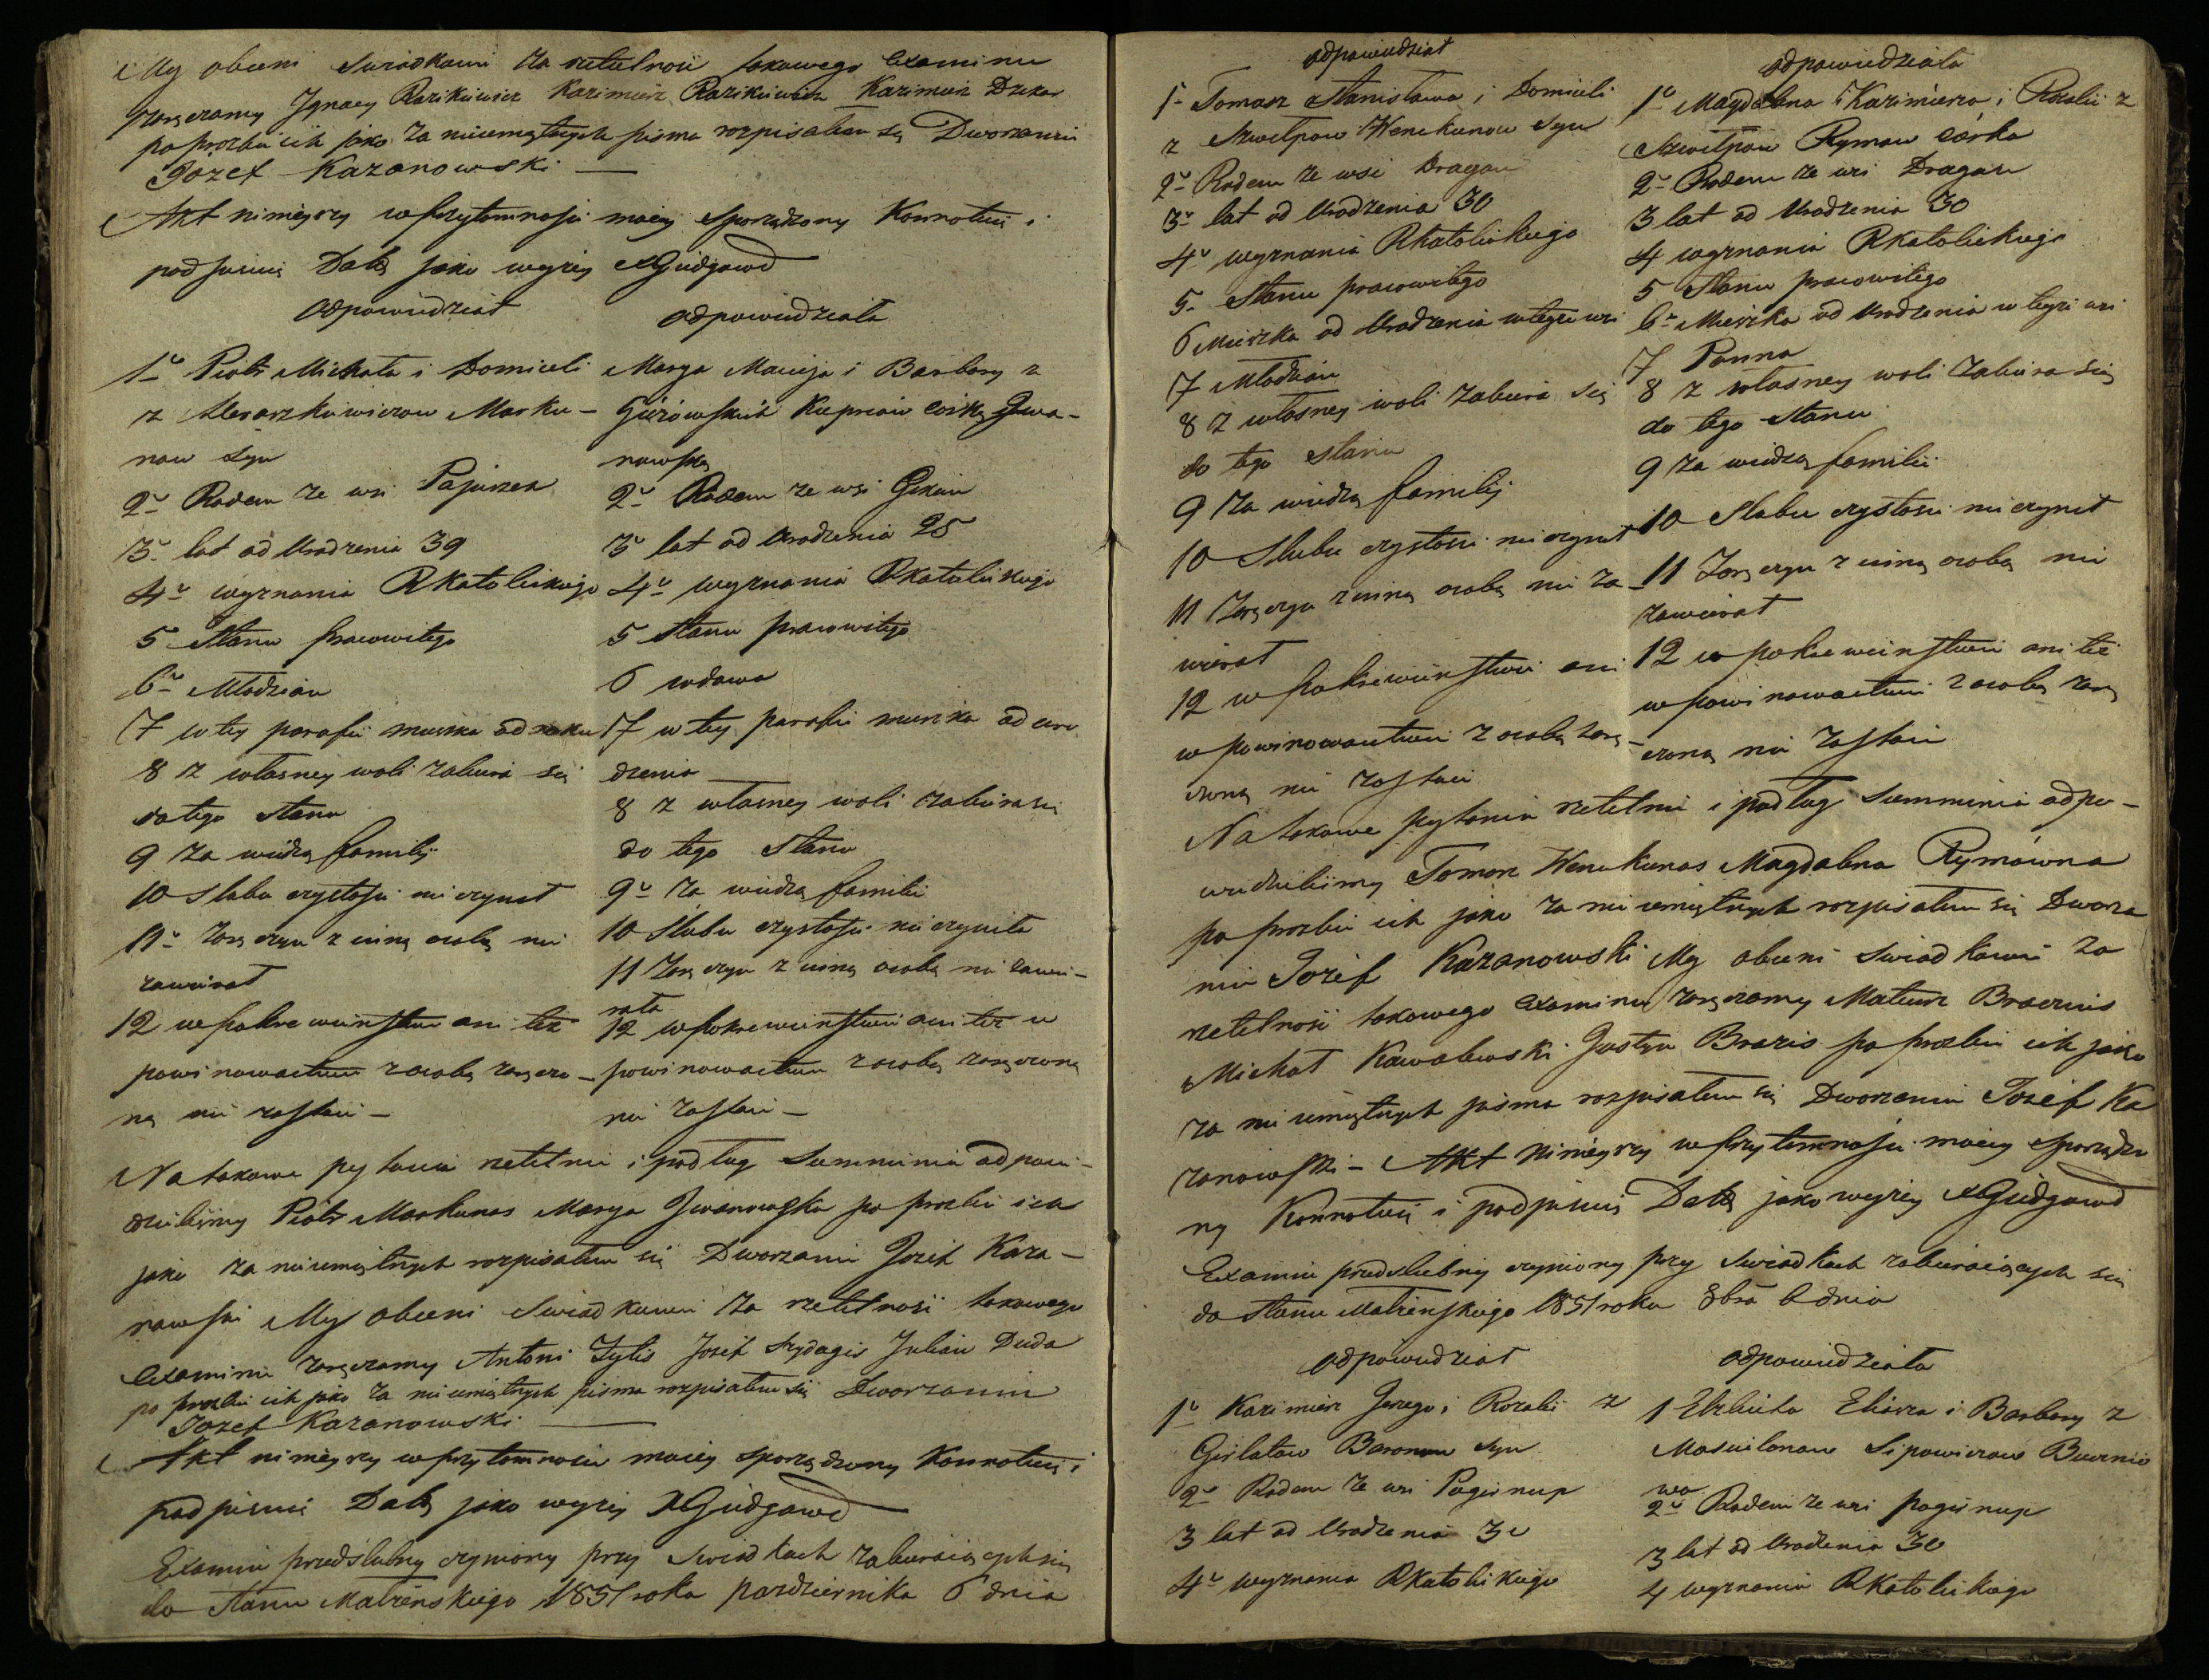 My obecni Swiadkami za rzetelność takowego Examinu
zaręczamy Jgnacy Razikiewicz Kazimierz Razikiewicz Kazimierz
po prozbie ich jako za nieumiętnych pisma rozpisałem się Dworzanin
Józef Kazanowski
Akt ninieyszy w przytomnosci moiey sporządzony Konnotuię i
podpisuię Datą jako wyżey XGiedgowd
odpowiedział
1º Piotr Michała i Domiceli
z Staraszkiewiczow Marku-
now Syn
2º Rodem ze wsi Pajurzea
3º lat od Urodzenia 39
4º wyznania RKatolickiego
5 Stanu pracowitego
6º Młodzian
7 w tey parafii mieszka od roku
8 z własney woli zabiera się
do tego Stanu
9 Za wiedzą familij
10 Slubu czystości nie czynił
11º Zaręczyn z inną osobą nie
zawierał
12 w pokrewienstwie ani też
powinowactwie z osobą zaręczo-
ną nie zostaie -
odpowiedziała
Marya Macieja i Barbary z
Giżowskich Kuprciow córka Jwa-
nowska
2º Rodem ze wsi Girdiu
3º lat od Urodzenia 25
4º wyznania RKatolickiego
5 Stanu pracowitego
6 wdowa
7 w tey parafii mieszka od uro
dzenia
8 z własney woli zabiera się
do tego Stanu
9º Za wiedzą familii
10 Slubu czystości nie czyniła
11 Zaręczyn z inną osobą nie zawie-
rała
12 w pokrewienstwie ani też w
powinowactwie z osobą zaręczoną
nie zostaie -
Na takowe pytania rzetelnie i podług Summienia odpowie-
dzieliśmy Piotr Markunas Marya Jwanowska po prozbie ich
jako za nieumiętnych rozpisałem się Dworzanin Jozef Kaza-
nowski My obecni Swiadkami za rzetelność takowego
Examinu zaręczamy Antoni Zylis Jozef Julian Duda
po prozbie ich jako za nieumiętnych pisma rozpisałem się Dworzanin
Jozef Kazanowski
Akt ninieyszy w przytomności moiey sporządzony Konnotuię i
podpisuię Datą jako wyżey XGiedgowd
Examin przedślubny czyniony przy Swiadkach zabieraiących się
do Stanu Małżeńskiego 1851 roku pazdziernika 6 dnia
odpowiedział
1º Tomasz Stanisława i Domiceli
z Szwelpow Wenckunow Syn
2º Rodem ze wsi Dragan
3º lat od Urodzenia 30
4º wyznania RKatolickiego
5 Stanu pracowitego
6 Mieszka od Urodzenia w teyże wsi
7 Młodzian
8 z własney woli zabiera się
do tego Stanu
9 Za wiedzą familij
10 Slubu czystości nie czynił
11 Zaręczyn z inną osobą nie za-
wierał
12 w pokrewienstwie ani
w powinowactwie z osobą zarę-
czoną nie zostaie
odpowiedziała
1º Magdalena Kazimierza i Rozalii z
Szwelpow Rymow córka
2º Rodem ze wsi Dragan
3 lat od Urodzenia 30
4 wyznania RKatolickiego
5 Stanu pracowitego
6º Mieszka od Urodzenia w teyże wsi
7 Panna
8 z własney woli zabiera się
do tego Stanu
9 Za wiedzą familii
10 Slubu czystości nie czynił
11 Zaręczyn z inną osobą nie
zawierał
12 w pokrewienstwie ani też
w powinowactwie z osobą zarę
czoną nie zostaie
Na takowe pytania rzetelnie i podług Summienia odpo-
wiedzieliśmy Tomasz Wenckunas Magdalena Rymówna
po prozbie ich jako za nieumiętnych rozpisałem się Dworza
nin Jozef Kazanowski My obecni Swiadkami za
rzetelność takowego Examinu zaręczamy Mateusz
Michał Kowalewski Justyn Brazis po prozbie ich jako
za nieumiętnych pisma rozpisałem się Dworzanin Jozef Ka
zanowski - Akt ninieyszy w przytomności moiey sporządzo
ny Konnotuię i podpisuię Datą jako wyżey XGiedgowd
Examin przedslubny czyniony przy Swiadkach zabieraiących się
do Stanu Małżenskiego 1851 roku 8bra 6 dnia
odpowiedział
1º Kazimierz Jerzego i Rozalii z
Gislatow Baronow Syn
2º Rodem ze wsi Pogirnup
3 lat od Urodzenia 30
4º wyznania RKatolickiego
odpowiedziała
1 Elzbieta Eliasza i Barbary z
Mascielonow Sipowiczow
2º Rodem ze wsi pogirnup
3 lat od Urodzenia 30
4 wyznania RKatolickiego